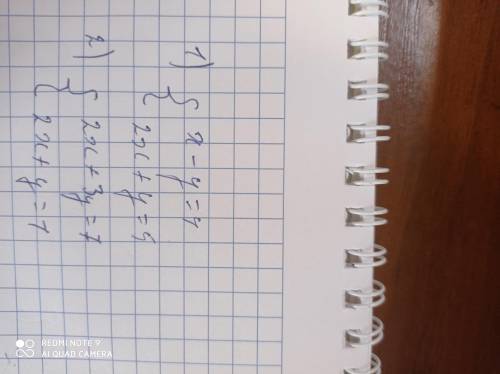 1) { x - y = 4
2x + y = 5
2) { 2x + 3y = 7
2x + y = 1
REDMI NOTE 9
AI QUAD CAMERA